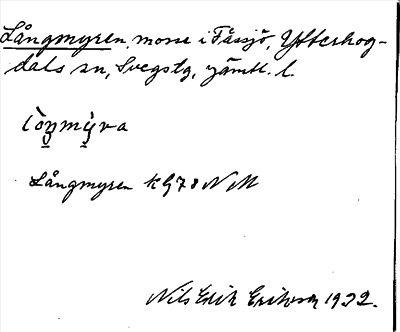 Långmyren, mosse i Fåssjö, Ytterhog-
dals sn, Svegs tg, Jämtl. l.
Långmyren KG 78 N M
Nils Erik Eriksson 1932.